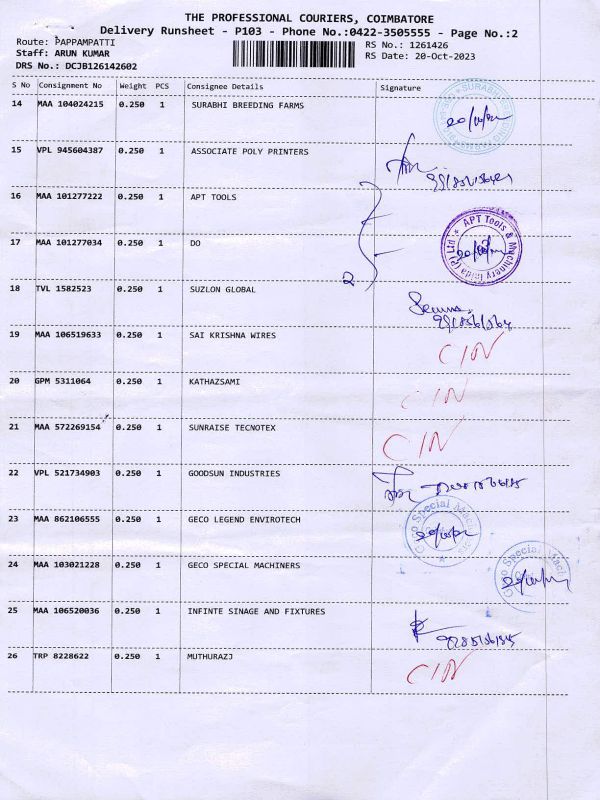 THE PROFESSIONAL COURIERS, COIMBATORE
Delivery Runsheet - P103 - Phone No.:0422-3505555 - Page No.:2
Route: PAPPAMPATTI RS No.: 1261426
Staff: ARUN KUMAR RS Date: 20-Oct-2023
DRS No.: DCJB126142602
S No Consignment No Weight PCS Consignee Details Signature
14 MAA 104024215 0.250 1 SURABHI BREEDING FARMS
15 VPL 945604387 0.250 1 ASSOCIATE POLY PRINTERS
16 MAA 101277222 0.250 1 APT TOOLS
17 MAA 101277034 0.250 1 DO APT Tools & Machinery India (P) Ltd
2
18 TVL 1582523 0.250 1 SUZLON GLOBAL
19 MAA 106519633 0.250 1 SAI KRISHNA WIRES C/N
20 GPM 5311064 0.250 1 KATHAZSAMI C/N
21 MAA 572269154 0.250 1 SUNRAISE TECNOTEX C/N
22 VPL 521734903 0.250 1 GOODSUN INDUSTRIES
23 MAA 862106555 0.250 1 GECO LEGEND ENVIROTECH Geco Special
24 MAA 103021228 0.250 1 GECO SPECIAL MACHINERS Geco Special
25 MAA 106520036 0.250 1 INFINTE SINAGE AND FIXTURES
26 TRP 8228622 0.250 1 MUTHURAZJ C/N